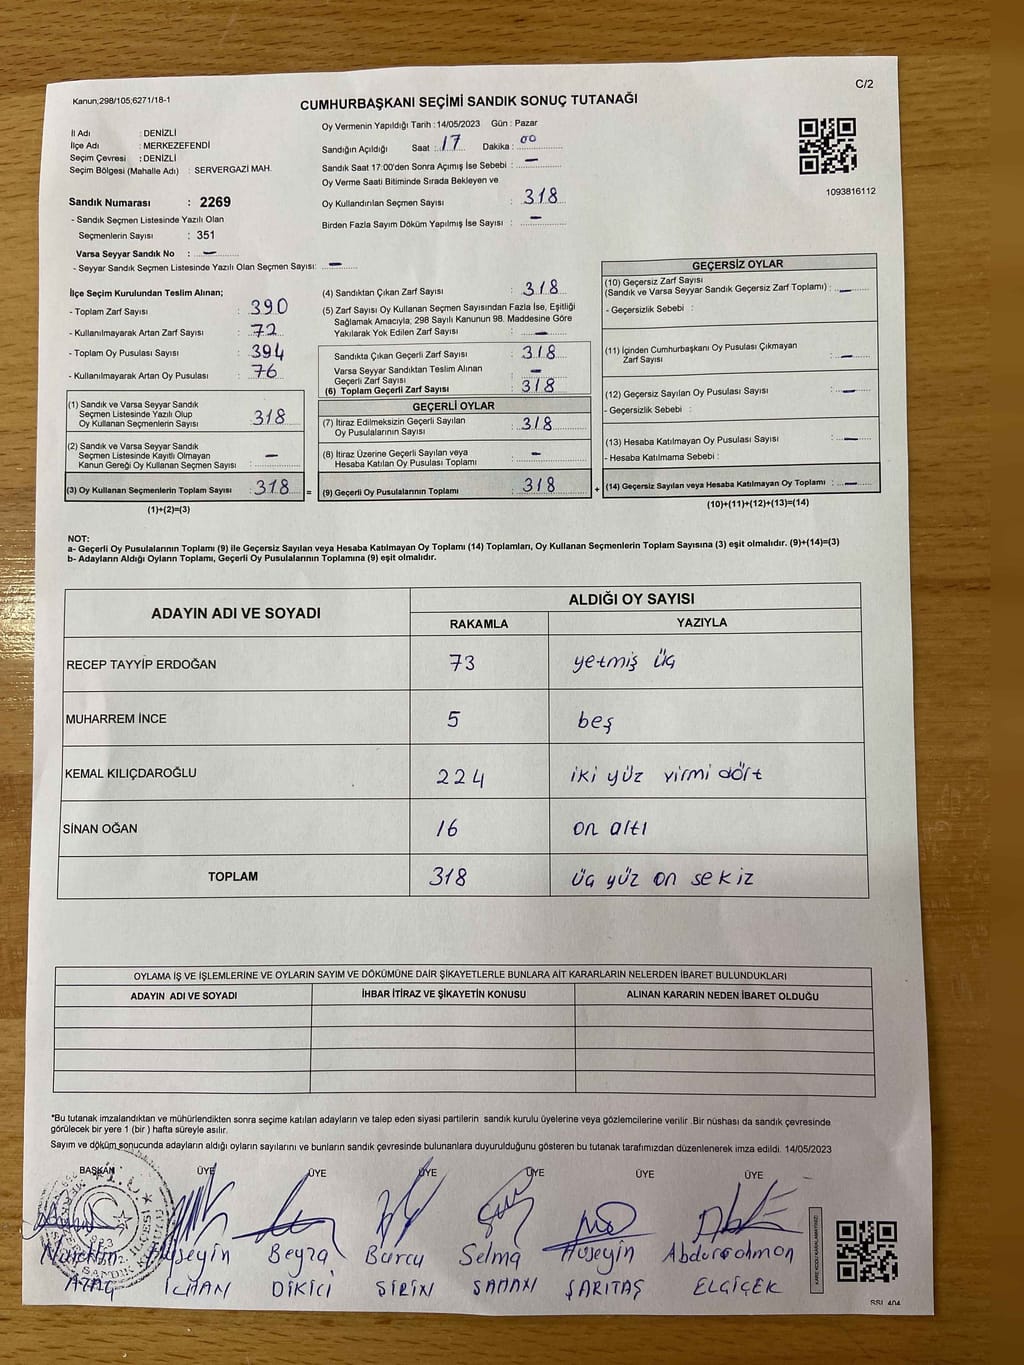 Kanun;298/105;6271/18-1
C/2
CUMHURBAŞKANI SEÇİMİ SANDIK SONUÇ TUTANAĞI
İl Adı : DENİZLİ
İlçe Adı : MERKEZEFENDİ
Seçim Çevresi : DENİZLİ
Seçim Bölgesi (Mahalle Adı) : SERVERGAZİ MAH.
Sandık Numarası : 2269
- Sandık Seçmen Listesinde Yazılı Olan
Seçmenlerin Sayısı : 351
Varsa Seyyar Sandık No : —
- Seyyar Sandık Seçmen Listesinde Yazılı Olan Seçmen Sayısı: —
Oy Vermenin Yapıldığı Tarih :14/05/2023 Gün : Pazar
Sandığın Açıldığı Saat : 17 Dakika : 00
Sandık Saat 17:00'den Sonra Açımış İse Sebebi : —
Oy Verme Saati Bitiminde Sırada Bekleyen ve
Oy Kullandırılan Seçmen Sayısı : 318
Birden Fazla Sayım Döküm Yapılmış İse Sayısı : —
1093816112
İlçe Seçim Kurulundan Teslim Alınan;
- Toplam Zarf Sayısı : 390
- Kullanılmayarak Artan Zarf Sayısı : 72
- Toplam Oy Pusulası Sayısı : 394
- Kullanılmayarak Artan Oy Pusulası : 76
(1) Sandık ve Varsa Seyyar Sandık
Seçmen Listesinde Yazılı Olup
Oy Kullanan Seçmenlerin Sayısı : 318
(2) Sandık ve Varsa Seyyar Sandık
Seçmen Listesinde Kayıtlı Olmayan
Kanun Gereği Oy Kullanan Seçmen Sayısı : —
(3) Oy Kullanan Seçmenlerin Toplam Sayısı : 318 =
(1)+(2)=(3)
(4) Sandıktan Çıkan Zarf Sayısı : 318
(5) Zarf Sayısı Oy Kullanan Seçmen Sayısından Fazla İse, Eşitliği
Sağlamak Amacıyla; 298 Sayılı Kanunun 98. Maddesine Göre
Yakılarak Yok Edilen Zarf Sayısı : —
Sandıkta Çıkan Geçerli Zarf Sayısı : 318
Varsa Seyyar Sandıktan Teslim Alınan
Geçerli Zarf Sayısı : —
(6) Toplam Geçerli Zarf Sayısı : 318
GEÇERLİ OYLAR
(7) İtiraz Edilmeksizin Geçerli Sayılan
Oy Pusulalarının Sayısı : 318
(8) İtiraz Üzerine Geçerli Sayılan veya
Hesaba Katılan Oy Pusulası Toplamı : —
(9) Geçerli Oy Pusulalarının Toplamı : 318 +
GEÇERSİZ OYLAR
(10) Geçersiz Zarf Sayısı
(Sandık ve Varsa Seyyar Sandık Geçersiz Zarf Toplamı) : —
- Geçersizlik Sebebi :
(11) İçinden Cumhurbaşkanı Oy Pusulası Çıkmayan
Zarf Sayısı : —
(12) Geçersiz Sayılan Oy Pusulası Sayısı : —
- Geçersizlik Sebebi :
(13) Hesaba Katılmayan Oy Pusulası Sayısı : —
- Hesaba Katılmama Sebebi :
(14) Geçersiz Sayılan veya Hesaba Katılmayan Oy Toplamı : —
(10)+(11)+(12)+(13)=(14)
NOT:
a- Geçerli Oy Pusulalarının Toplamı (9) ile Geçersiz Sayılan veya Hesaba Katılmayan Oy Toplamı (14) Toplamları, Oy Kullanan Seçmenlerin Toplam Sayısına (3) eşit olmalıdır. (9)+(14)=(3)
b- Adayların Aldığı Oyların Toplamı, Geçerli Oy Pusulalarının Toplamına (9) eşit olmalıdır.
ADAYIN ADI VE SOYADI ALDIĞI OY SAYISI
RAKAMLA YAZIYLA
RECEP TAYYİP ERDOĞAN 73 yetmiş üç
MUHARREM İNCE 5 beş
KEMAL KILIÇDAROĞLU 224 iki yüz yirmi dört
SİNAN OĞAN 16 on altı
TOPLAM 318 üç yüz on sekiz
OYLAMA İŞ VE İŞLEMLERİNE VE OYLARIN SAYIM VE DÖKÜMÜNE DAİR ŞİKAYETLERLE BUNLARA AİT KARARLARIN NELERDEN İBARET BULUNDUKLARI
ADAYIN ADI VE SOYADI İHBAR İTİRAZ VE ŞİKAYETİN KONUSU ALINAN KARARIN NEDEN İBARET OLDUĞU
*Bu tutanak imzalandıktan ve mühürlendikten sonra seçime katılan adayların ve talep eden siyasi partilerin sandık kurulu üyelerine veya gözlemcilerine verilir .Bir nüshası da sandık çevresinde
görülecek bir yere 1 (bir ) hafta süreyle asılır.
Sayım ve döküm sonucunda adayların aldığı oyların sayılarını ve bunların sandık çevresinde bulunanlara duyurulduğunu gösteren bu tutanak tarafımızdan düzenlenerek imza edildi. 14/05/2023
BAŞKAN ÜYE ÜYE ÜYE ÜYE ÜYE ÜYE
Nurettin Hüseyin Beyza Burcu Selma Hüseyin Abdurrahman
İLHAN DİKİCİ SİRİN SAMAN SARITAŞ ELGİÇEK